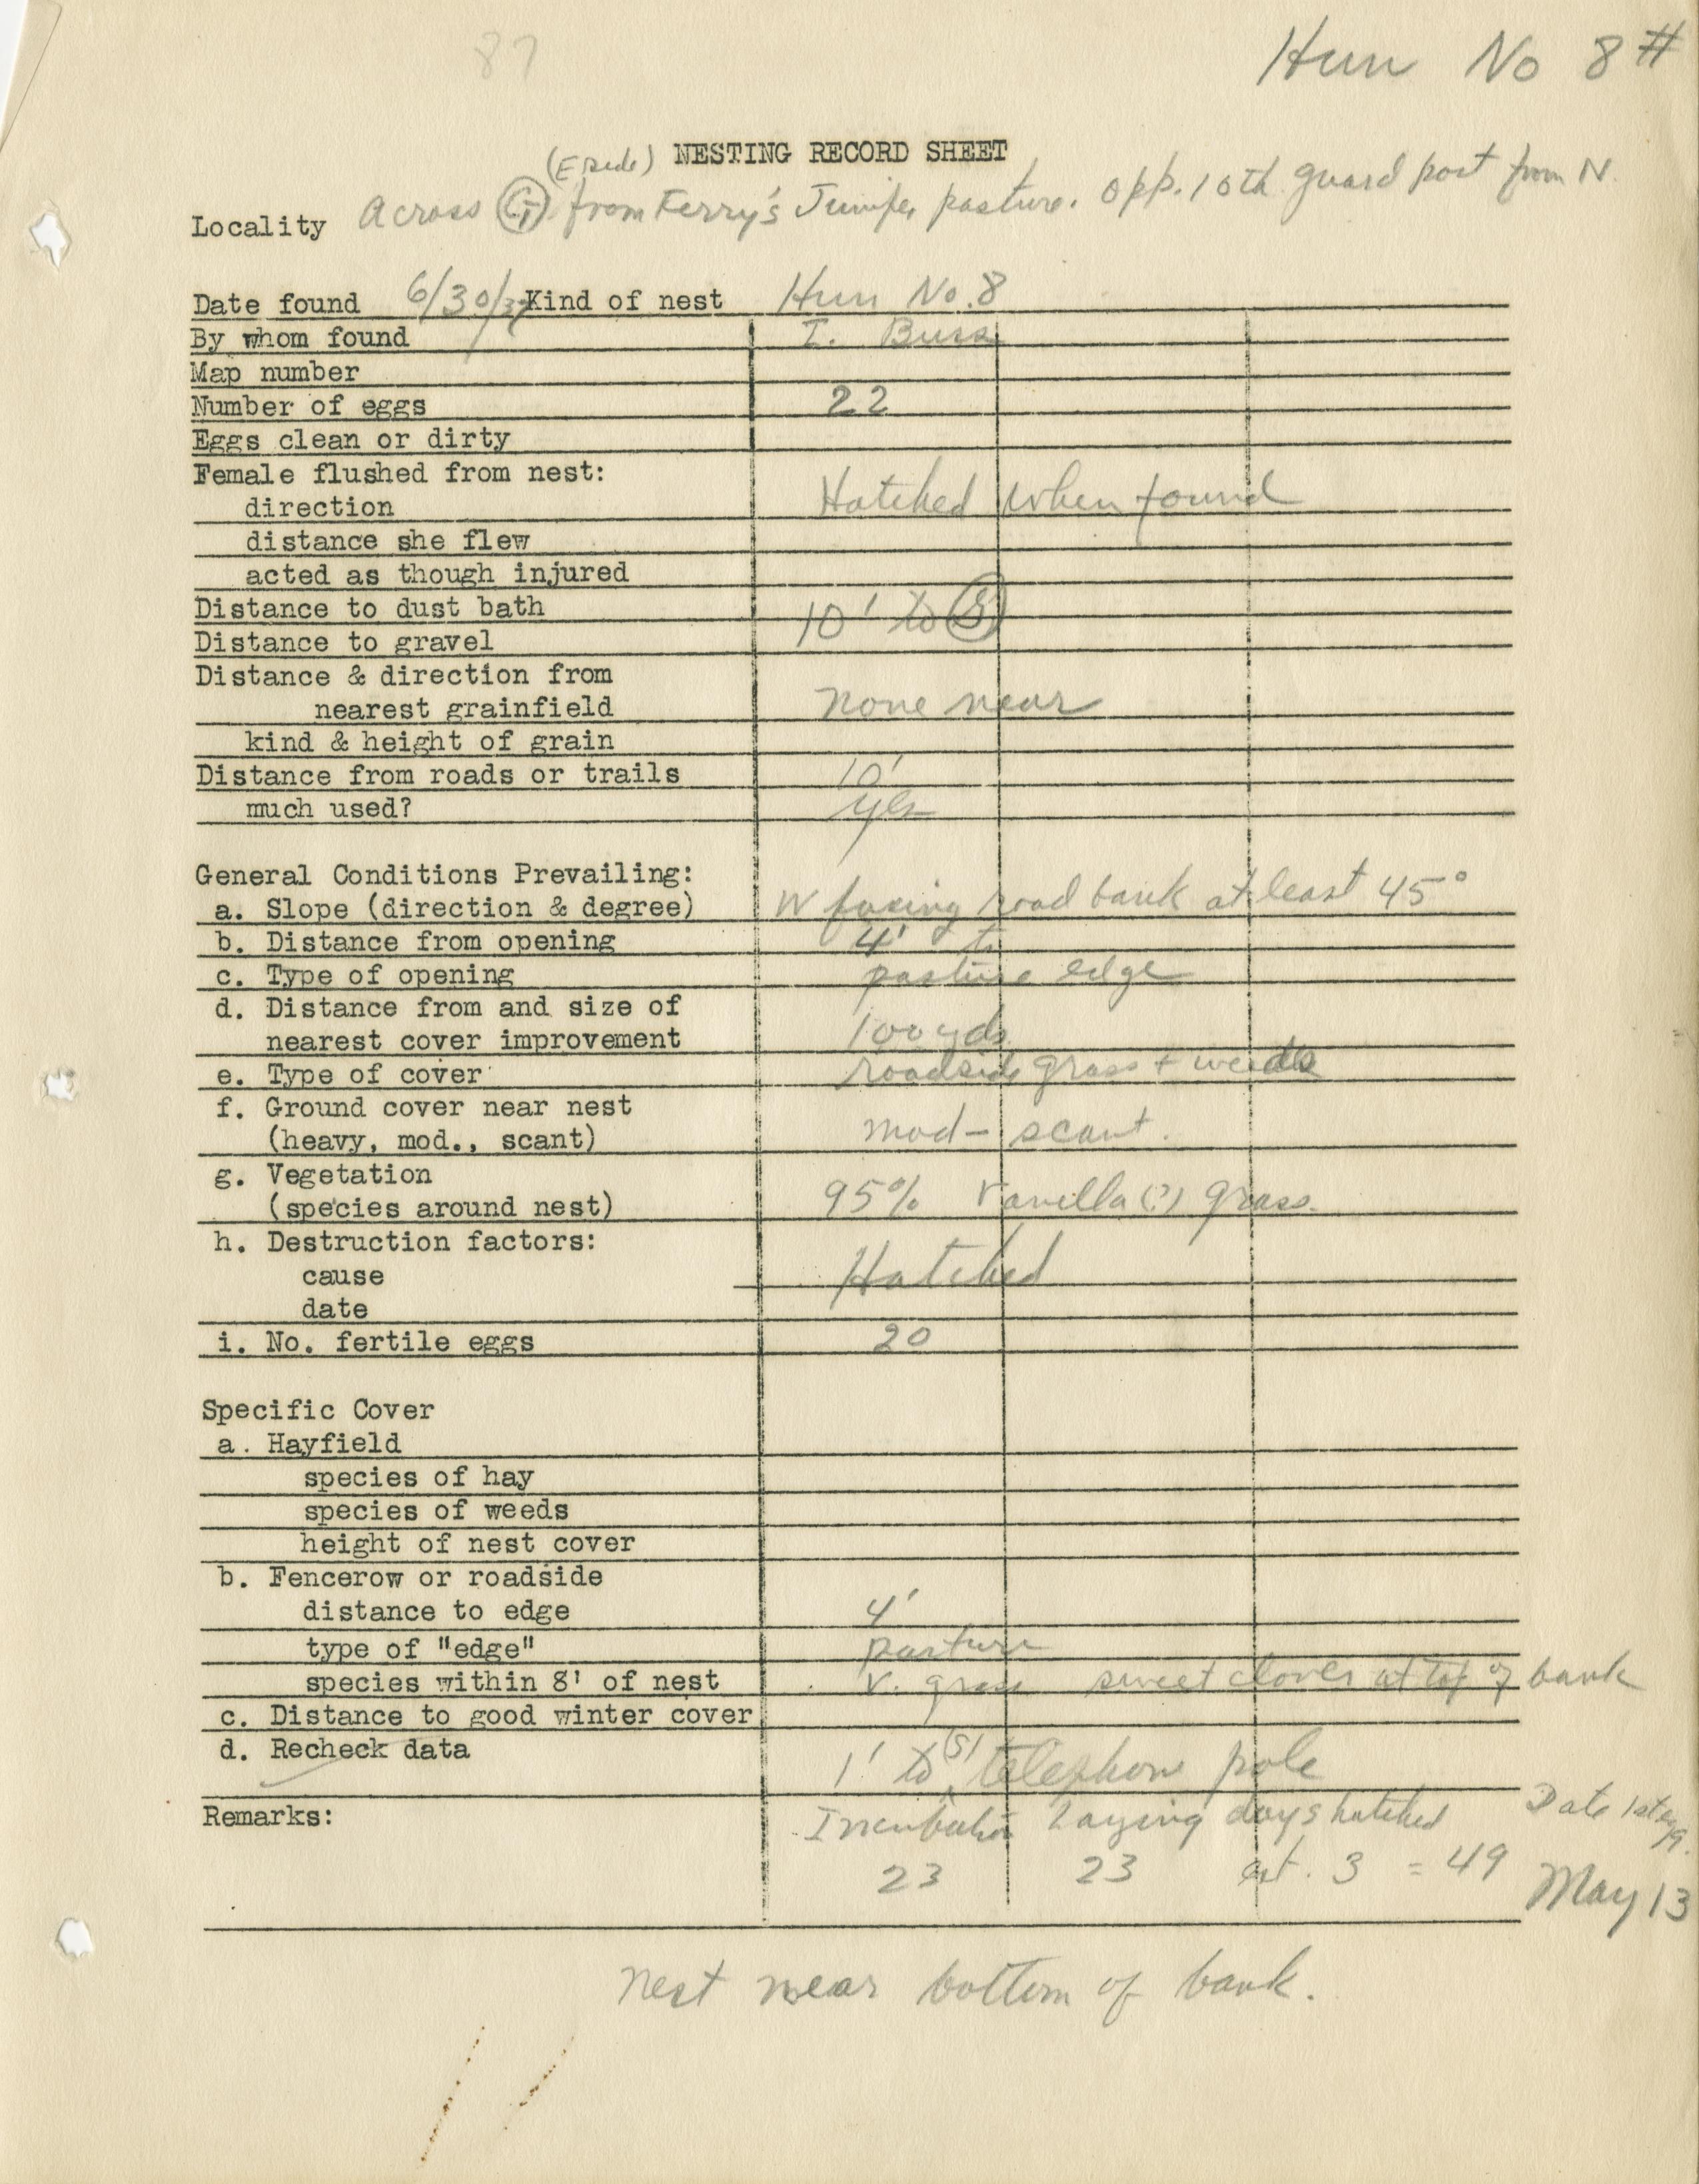 87
Hun No 8 #
(E side) NESTING RECORD SHEET
Locality Across G from Ferry's Juniper pasture. opp. 10th guard post from N.
Date found 6/30/37 Kind of nest Hun No. 8
By whom found I. Buss
Map number
Number of eggs 22
Eggs clean or dirty
Female flushed from nest:
direction Hatched when found
distance she flew
acted as though injured
Distance to dust bath
10' to S
Distance to gravel
Distance & direction from
nearest grainfield none near
kind & height of grain
Distance from roads or trails 10'
much used? yes
General Conditions Prevailing:
a. Slope (direction & degree) W facing road bank at least 45°
b. Distance from opening 4' to
c. Type of opening pasture edge
d. Distance from and size of
nearest cover improvement 100 yds.
e. Type of cover roadside grass + weeds
f. Ground cover near nest
(heavy, mod., scant) mod - scant.
g. Vegetation
(species around nest) 95% Vanilla (?) grass.
h. Destruction factors:
cause Hatched
date
i. No. fertile eggs 20
Specific Cover
a. Hayfield
species of hay
species of weeds
height of nest cover
b. Fencerow or roadside
distance to edge 4'
type of "edge" pasture
species within 8' of nest V. grass sweet clover at top of bank
c. Distance to good winter cover
d. Recheck data 1' to (S) telephone pole
Remarks: Incubation Laying days hatched Date 1st egg.
23 23 est. 3 = 49 May 13
nest near bottom of bank.